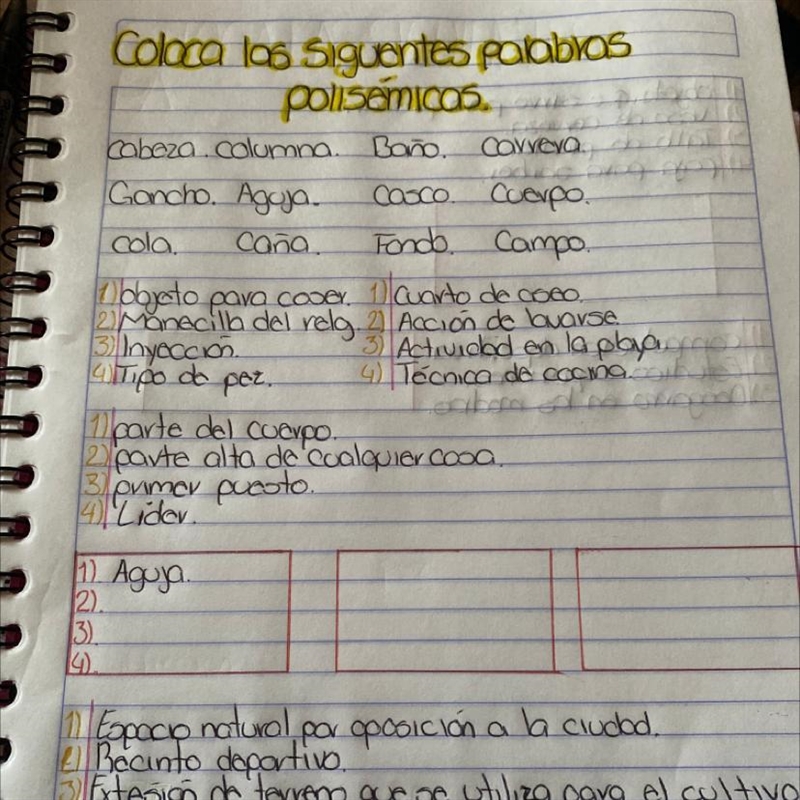 Coloca las siguentes palabras
polisémicas.
Cabeza. Columna. Baño. Carrera.
Gancho. Aguja. Casco. Cuerpo.
Cola. Caña. Fondo. Campo.
1) objeto para coser. 1) Cuarto de aseo.
2) Manecilla del reloj. 2) Acción de lavarse
3) Inyección. 3) Actividad en la playa.
4) Tipo de pez. 4) Técnica de cocina.
1) parte del cuerpo.
2) parte alta de cualquier cosa.
3) primer puesto.
4) Líder.
1) Aguja.
2).
3).
4).
1) Espacio natural por oposición a la ciudad.
2) Recinto deportivo.
3) Extesión de terreno que se utiliza para el cultivo